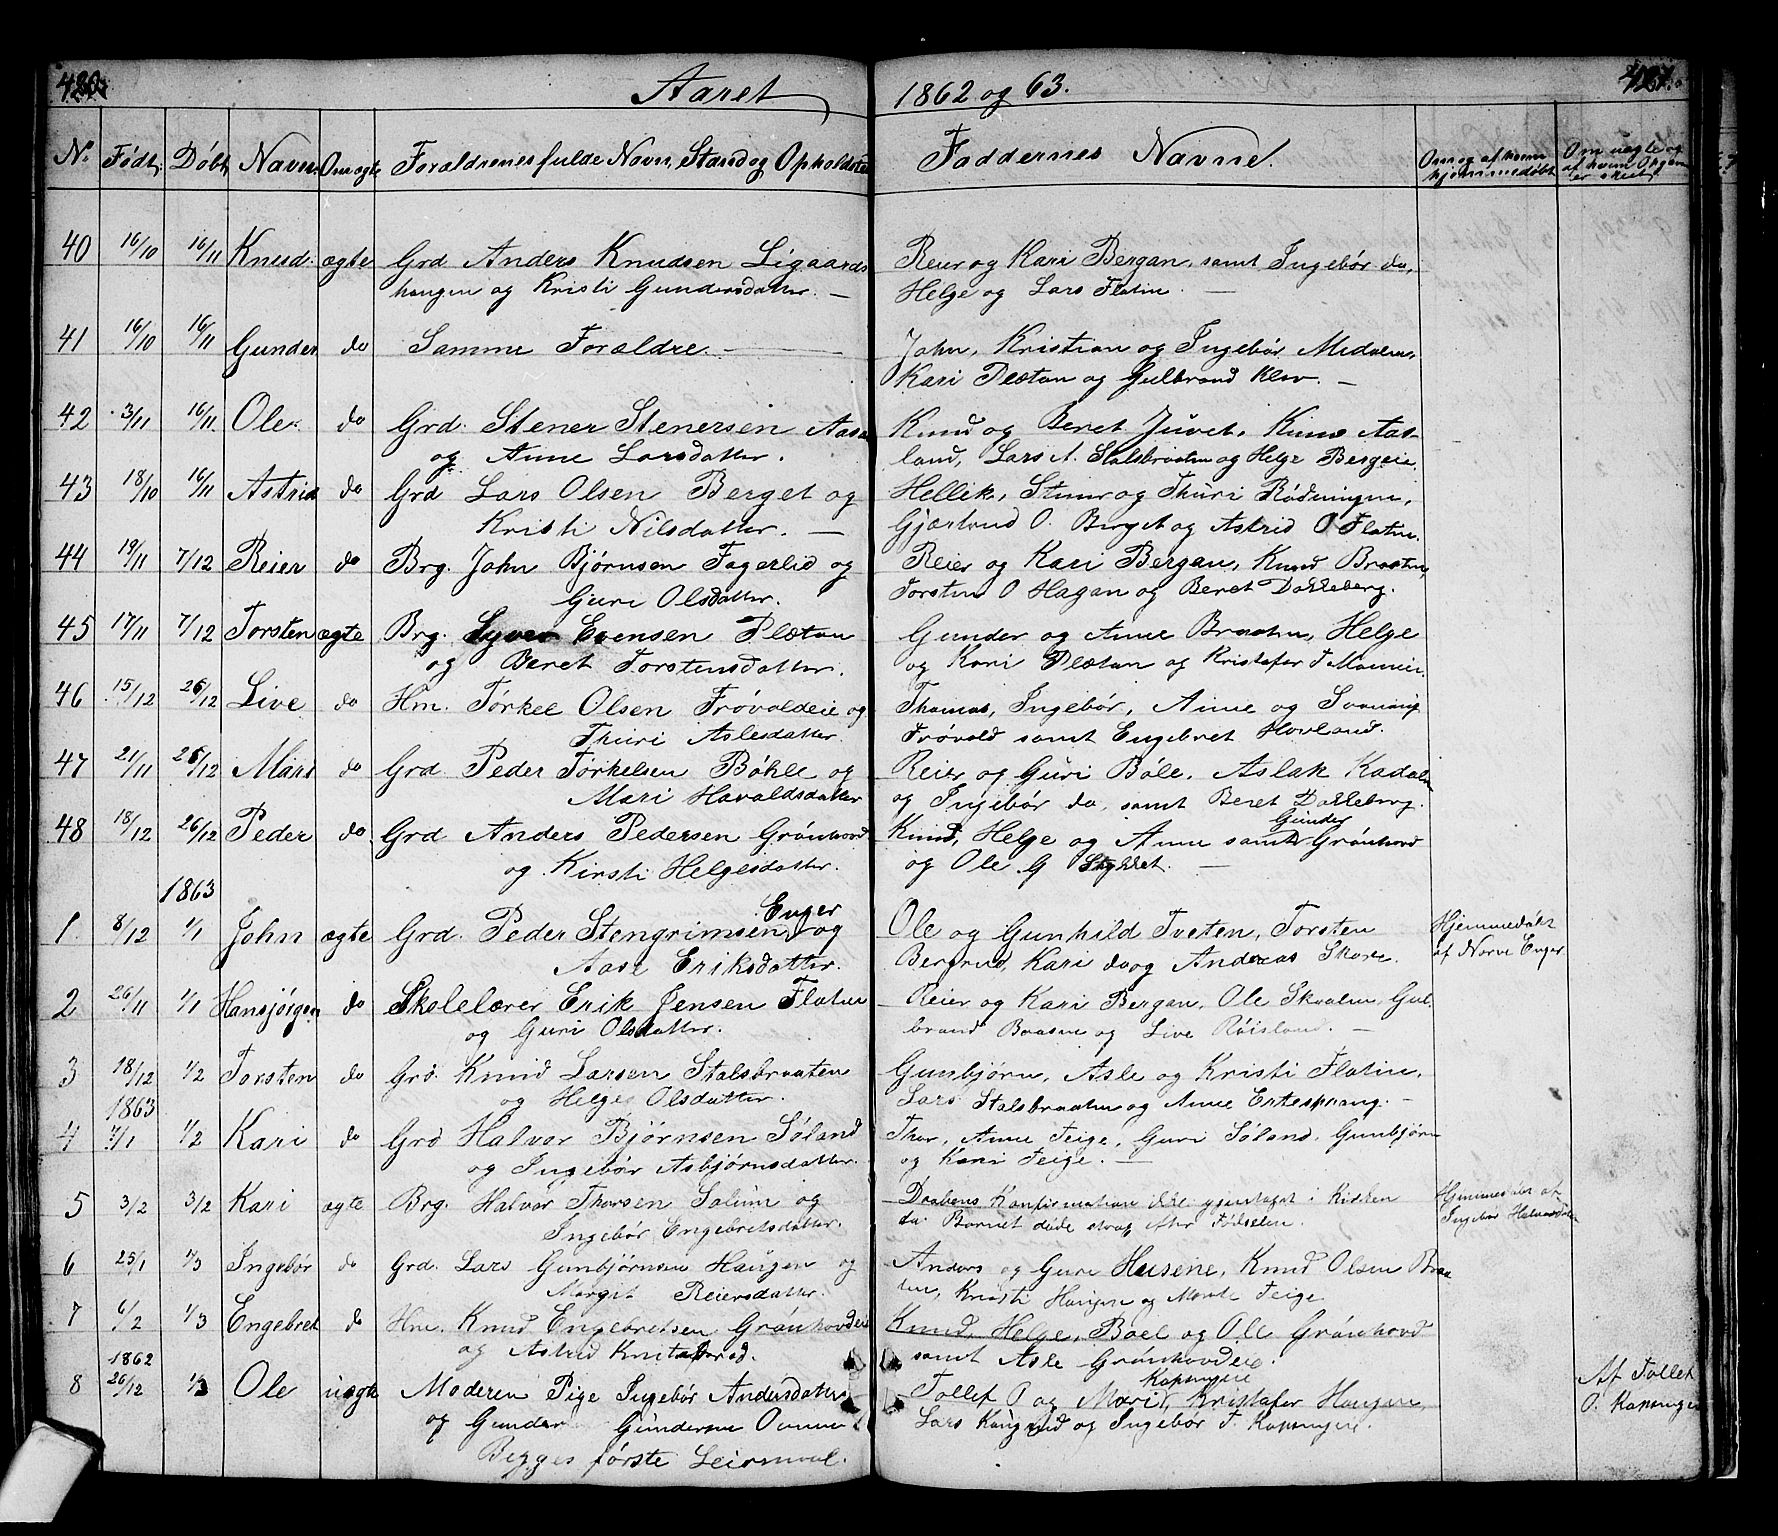 420. Aaret 1862 og 63. 421.
No. Født. Døbt Navn. Om ægte Forældrenes fulde Navn, Stand og Opholdsted Faddernes Navne. Om og af hvem hjemmedøbt Om uægte og af hvem Opgave er skeet
40 16/10 16/11 Knud. ægte Grd Anders Knudsen Ligaards Reier og Kari Bergan, samt Ingebør do,
haugen og Kristi Gundersdatter. — Helge og Lars Flatin. —
41 16/10 16/11 Gunder do Samme Forældre. — John, Kristian og Ingebør Medalen,
Kari Plætan og Gulbrand Klev. —
42 3/11 16/11 Ole. do Grd. Stener Stenersen Aasa Knud og Beret Juvet, Knud Aas-
og Anne Larsdatter. land, Lars A. Stalsbraaten og Helge Bergeie.
43 18/10 16/11 Astrid do Grd Lars Olsen Berget og Hellik, Stener og Thuri Rødningen,
Kristi Nilsdatter. — Gjærtrud O. Berget og Astrid O Flatin.
44 19/11 7/12 Reier do Brg. John Bjørnsen Fagerlid og Reier og Kari Bergan, Knud Braaten,
Guri Olsdatter. Torsten O Hagan og Beret Dokkeberg.
45 17/11 7/12 Torsten ægte Brg. Syver Evensen Plætan Gunder og Anne Braaten, Helge
og Beret Torstensdatter. og Kari Plætan og Kristofer T
46 15/12 26/12 Live do Hm. Tørkel Olsen Frøvoldeie og Thomas, Ingebør, Anne og Svanaug
Thuri Aslesdatter. Frøvold samt Engebret Hovland.
47 21/11 26/12 Mari do Grd Peder Tørkelsen Bøhle og Reier og Guri Bøle, Aslak Kadalen
Mari Havaldsdatter og Ingebør do, samt Beret Dokkeberg.
48 18/12 26/12 Peder do Grd Anders Pedersen Grønhovd Knud, Helge og Anne samt Gunder Grønhovd
og Kirsti Helgesdatter. og Ole G Stykket. —
1863
1 8/12 1/1 John ægte Grd. Peder Stengrimsen Enger og Ole og Gunhild Tveten, Torsten Hjemmedøbt
Aase Eriksdatter. Bergrud, Kari do og Andreas Skare. af Enger
2 26/11 1/1 Hansjørgen do Skolelærer Erik Jensen Flatin Reier og Kari Bergan, Ole Skaalen, Gul-
og Guri Olsdatter. brand Braaten og Live Røisland. —
3 18/12 1/2 Torsten do Grd. Knud Larsen Stalsbraaten Gunbjørn, Asle og Kristi Flatin,
og Helge Olsdatter. Lars Stalsbraaten og Anne Ertesprang. —
1863
4 7/1 1/2 Kari do Grd Halvor Bjørnsen Søland Thor, Anne Teige, Guri Søland, Gunbjørn
og Ingebør Asbjørnsdatter. og Kari Teige. —
5 3/2 3/2 Kari ægte Brg. Halvor Thorsen Solum og Daabens Konfirmation ikke gjentaget i Kirken Hjemmedøbt af
Ingebør Engebretsdatter. da Barnet døde strax efter Fødselen. Ingebør Halvorsdatter
6 25/1 1/3 Ingebør do Grd. Lars Gunbjørnsen Haugen og Anders og Guri Husene, Knud Olsen Braa
Margit Reiersdatter. ten, Kristi Haugen og Marit Teige
7 6/2 1/3 Engebret do Hm. Knud Engebretsen Grønhovdeie Knud, Helge, Boel og Ole Grønhovd
og Astrid Knutsdatter. samt Asle Grønhovdeie.
1862
8 26/12 1/3 Ole uægte Moderen Pige Ingebør Andersdatter Tollef O og Mari Kopsengen, Kristofer Haugen, Af Tollef
og Gunder Gundersen Lars og Ingebør T. Kopsengen. O. Kopsengen
Begges første Leiermaal.